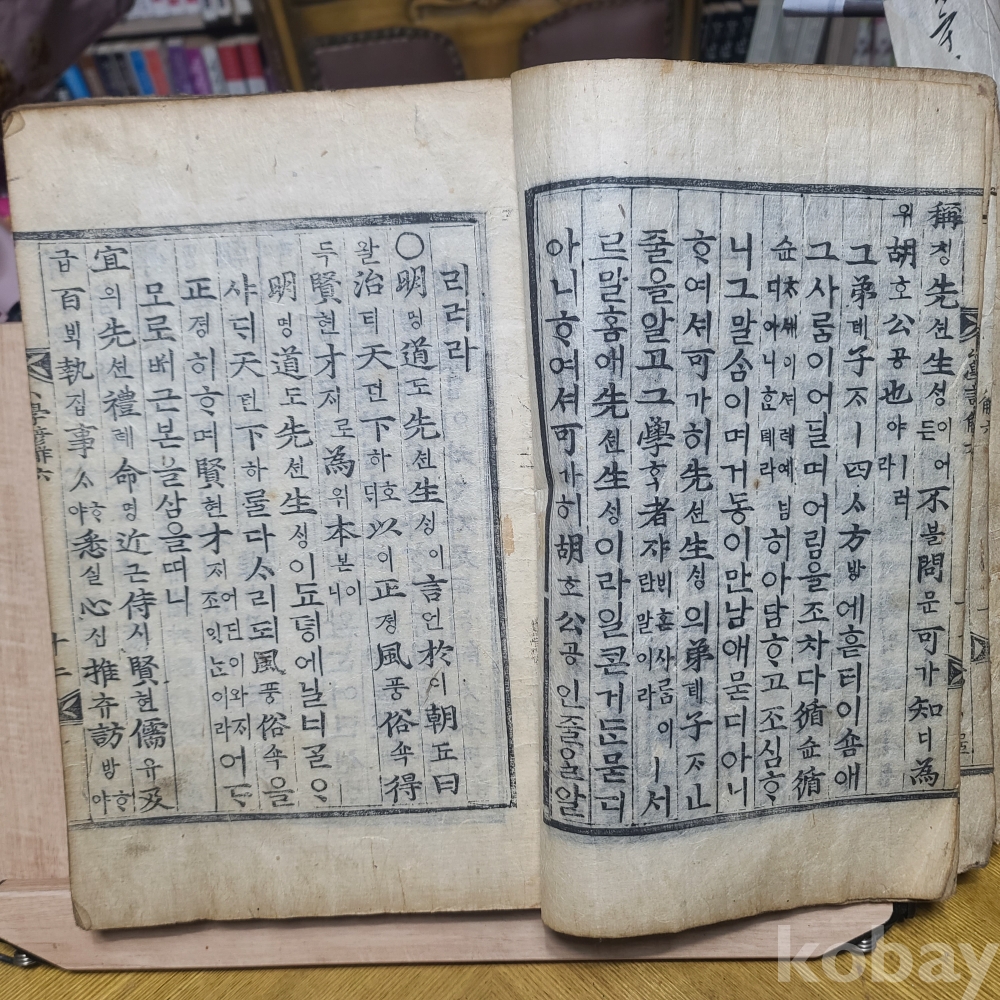 稱칭先션生ᄉᆡᆼ이어든不블問문可가知디爲
위胡호公공也야ㅣ러라
그弟뎨子ᄌᆞㅣ四ᄉᆞ方방에흘터이숌애
그사ᄅᆞᆷ이어딜며어림을조차다循슌循
슌이셔례예넘디아니ᄒᆞᆫ톄라히아담ᄒᆞ고조심ᄒᆞ
니그말ᄉᆞᆷ이며거동이만남애묻디아니
ᄒᆞ여셔可가히先션生ᄉᆡᆼ의弟뎨子ᄌᆞㅣㄴ
줄을알고그學ᄒᆞᆨ者쟈ᄇᆡ혼사ᄅᆞᆷ이란말이라ㅣ서
르말홈애先션生ᄉᆡᆼ이라일콛거든묻디
아니ᄒᆞ여셔可가히胡호公공인줄을알
리러라
○明명道도先션生ᄉᆡᆼ이言언於어朝됴曰
왈治티天텬下하호ᄃᆡ以이正졍風풍俗쇽得
득賢현才ᄌᆡ로爲위本본이니
明명道도先션生ᄉᆡᆼ이됴뎡에닐너ᄀᆞᆯᄋᆞ
샤ᄃᆡ天텬下하ᄅᆞᆯ다ᄉᆞ리되風풍俗쇽을
正졍히ᄒᆞ며賢현才ᄌᆡ어딘이와ᄌᆡ조잇ᄂᆞᆫ이라어드
모로매근본을삼을띠니
宜의先션禮례命명近근侍시賢현儒유及
급百ᄇᆡᆨ執집事ᄉᆞᄒᆞ야悉실心심推츄訪방ᄒᆞ야
小學諺解六
十二
kobay